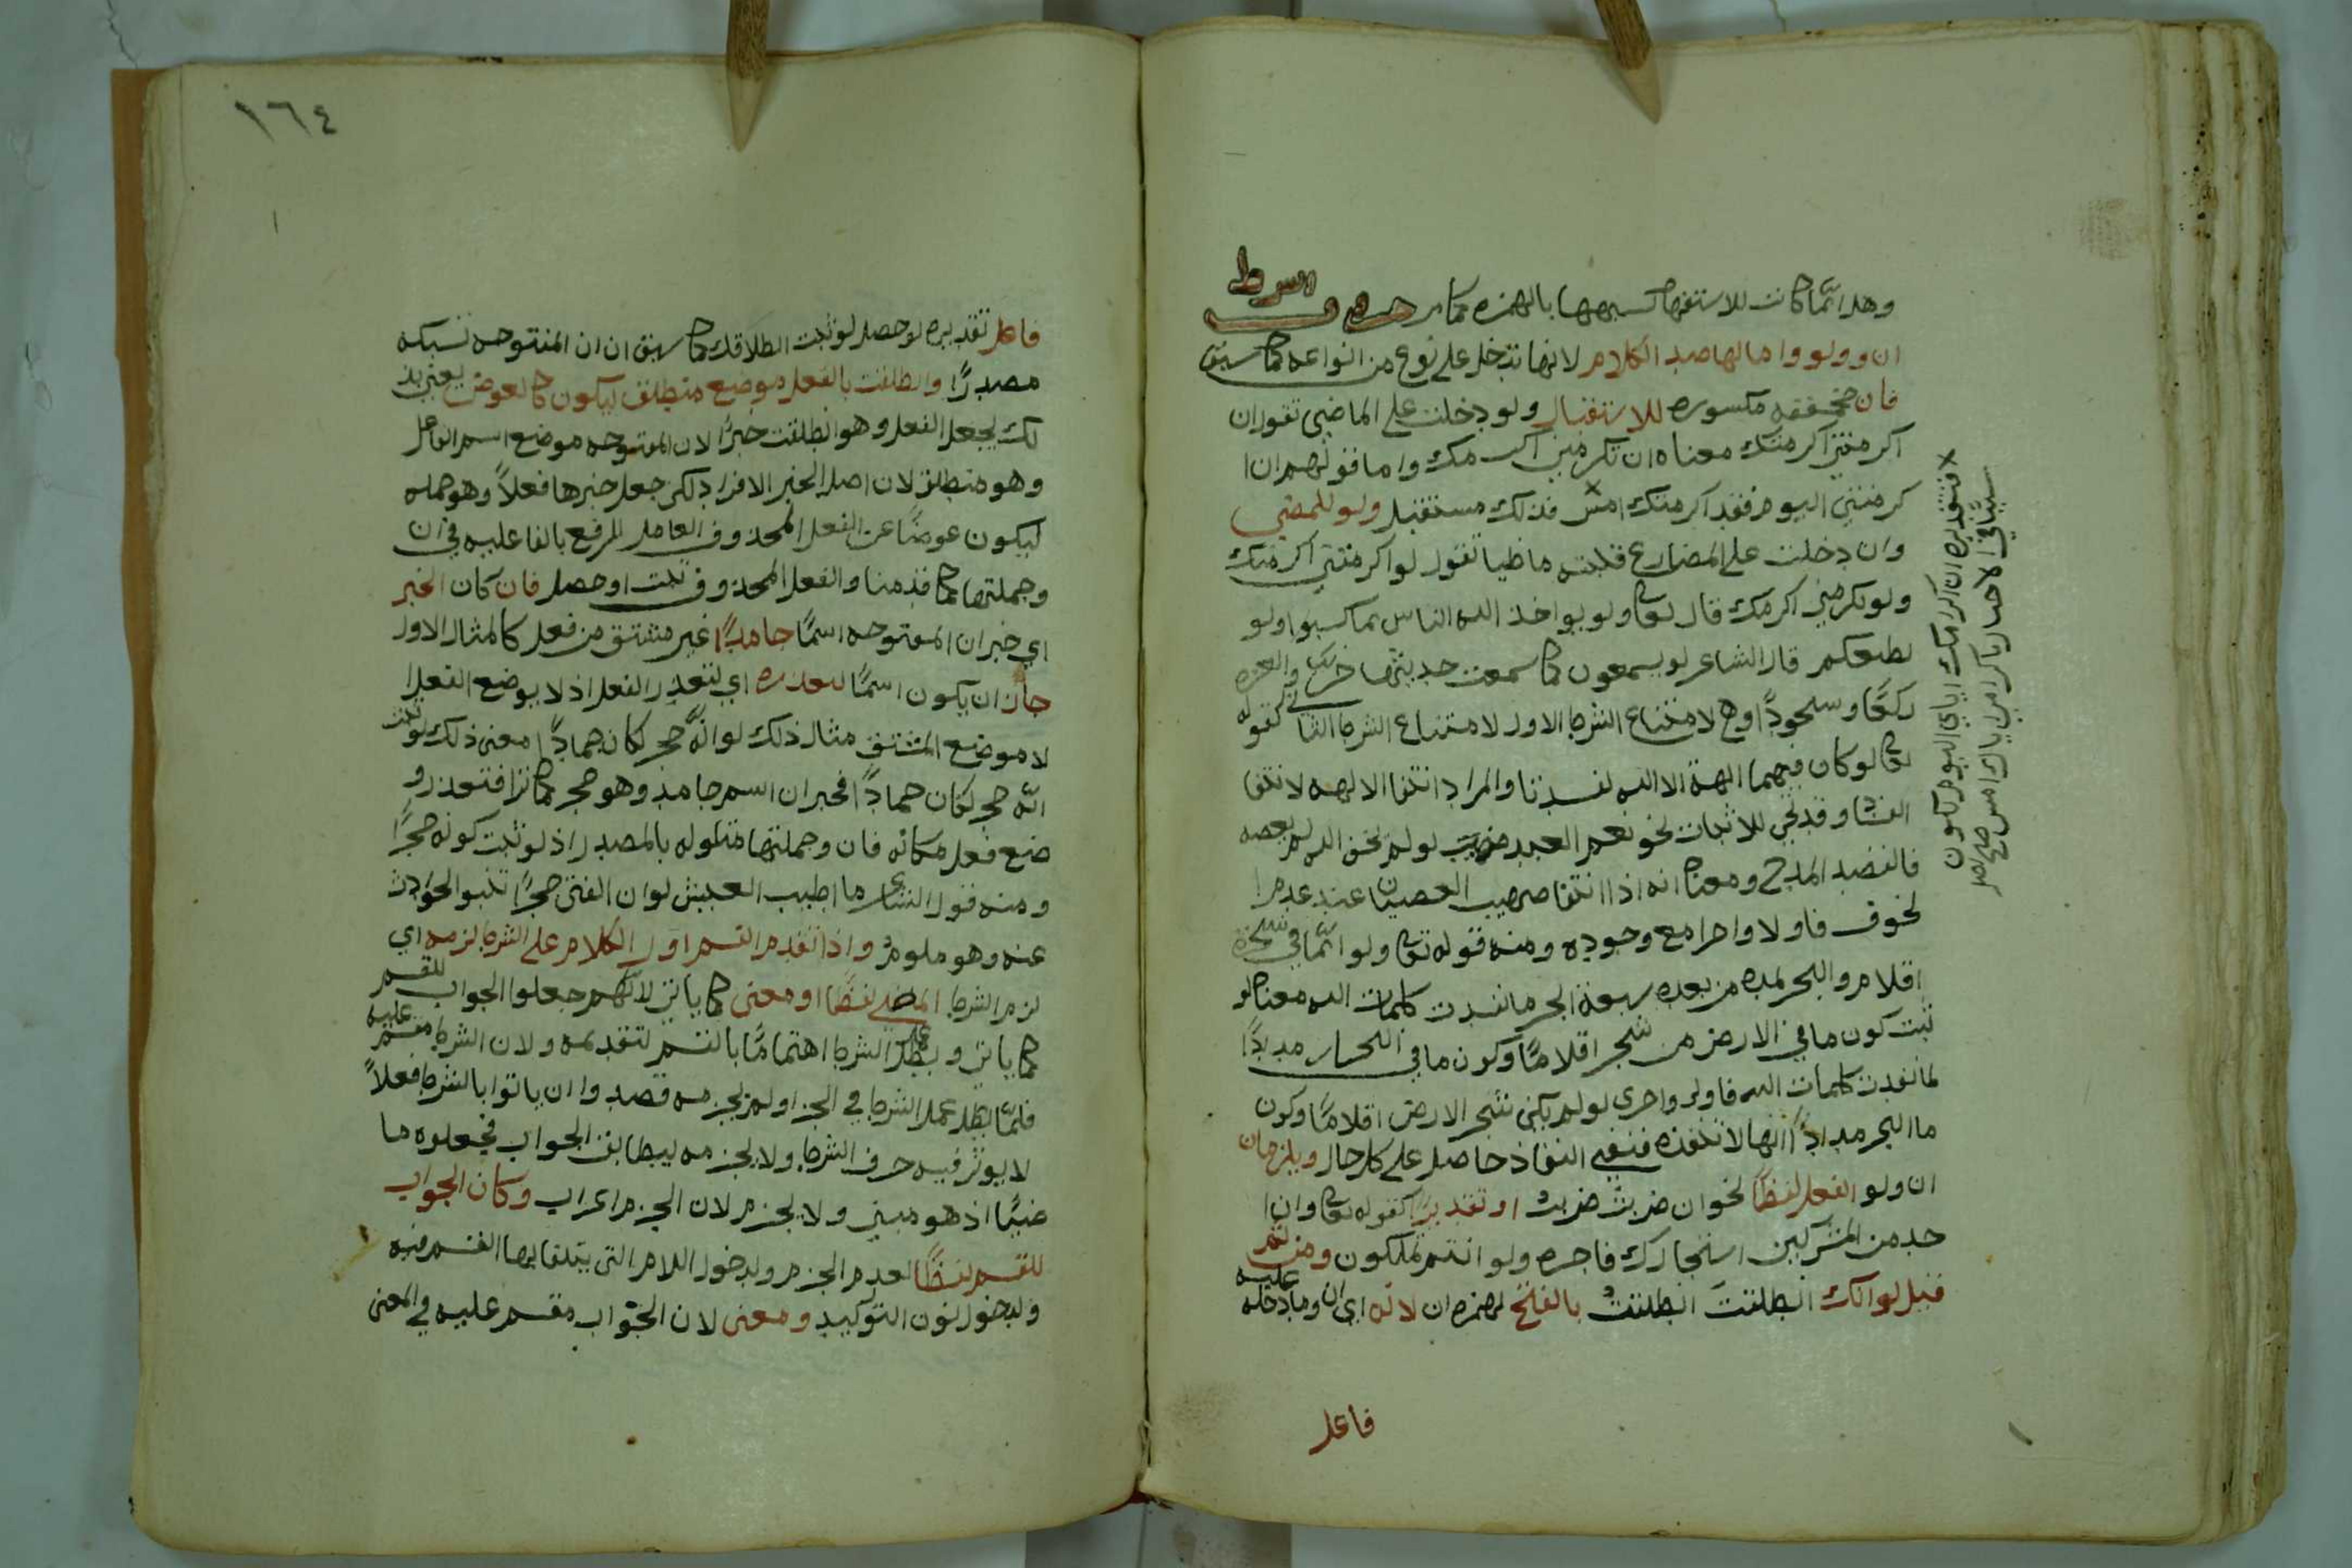 وهل انما كانت للاستفهام لشبهها بالهمزه كما مر حروف الشرط
ان ولو واما لها صدر الكلام لانها تدخل على نوع من انواعه كما سبق
فان مخففه مكسوره للاستقبال ولو دخلت على الماضي تقول ان
اكرمتني اكرمتك معناه ان تكرمني اكرمك واما قولهم ان ا
كرمتني اليوم فقد اكرمتك امس فذلك مستقبل ولو للمضي
وان دخلت على المضارع قلبته ماضيا تقول لو اكرمتني اكرمتك
ولو تكرمني اكرمك قال تعالى ولو يواخذ الله الناس بما كسبوا ولو
يطيعكم قال الشاعر لو يسمعون كما سمعت حديثها خروا لعزه
ركعا وسجودا وهي لامتناع الشرط الاول لامتناع الشرط الثاني كقوله
تعالى لو كان فيهما الهة الا الله لفسدتا والمراد انتفا الالهه لانتفا
الفسا وقد تجي للاثبات نحو نعم العبد صهيب لو لم يخف الله لم يعصه
فالقصد المدح ومعناه انه اذا انتفا صهيب العصيان عند عدم ا
لخوف فاولا واحرا مع وجوده ومنه قوله تعالى ولو انما في شجرة
اقلام والبحر يمده من بعده سبعة ابحر ما نفدت كلمات الله معناه لو
ثبت كون ما في الارض من شجر اقلاما وكون ما في البحار مدادا
لما نفدت كلمات الله فاولى واحرى لو لم يكن شجر الارض اقلاما وكون
ما البحر مدادا انها لا تنفذ فنفي النفاذ حاصل على كل حال ويلزمان
ان ولو الفعل لفظا نحو ان ضربت ضربت او تقديرا كقوله تعالى وان ا
حد من المشركين استجارك فاجره ولو انتم تملكون ومن ثم
قيل لو انك انطلقت انطلقت بالفتح لهمزه ان لانه اي ان وما دخلت عليه
فاعل
× فتقديره ان اكرامك اياي اليوم يكون
سببا في الاخبار باكرامي اياك امس صح اصل
١٦٤
فاعل تقديره لو حصل لو ثبت انطلاقك كما سبق ان ان المفتوحه تسبكه
مصدرا وانطلقت بالفعل موضع منطلق ليكون كالعوض يعني بذ
لك يجعل الفعل وهو انطلقت خبرا لان المفتوحه موضع اسم الفاعل
وهو منطلق لان اصل الخبر الافراد لكن جعل خبرها فعلا وهو جمله
ليكون عوضا عن الفعل المحذوف العامل الرفع بالفاعليه في ان
وجملتها كما قدمنا والفعل المحذوف ثبت او حصل فان كان الخبر
اي خبر ان المفتوحه اسما جامدا غير مشتق من فعل كالمثال الاول
جاز ان يكون اسما لتعذره اي لتعذر الفعل اذ لا يوضع الفعل ا
لا موضع المشتق مثال ذلك لو انه حجر لكان جمادا معنى ذلك لو ثبت
انه حجر لكان جمادا فخبر ان اسم جامد وهو حجر كما ترا فتعذر و
ضع فعل مكانه فان وجملتها متاوله بالمصدر اذ لو ثبت كونه حجرا
ومنه قول الشاعر ما اطيب العيش لو ان الفتى حجرا تنبو الحوادث
عنه وهو ملوم واذا تقدم القسم اول الكلام على الشرط لزمه اي
لزم الشرط الماضي لفظا او معنى كما ياتي لانهم جعلوا الجواب للقسم
كما ياتي وبطل عمل الشرط اهتماما بالقسم لتقدمه ولان الشرط مقسم عليه
فلما بطل عمل الشرط في الجزا ولم يجزمه قصدوا ان ياتوا بالشرط فعلا
لا يوثر فيه حرف الشرط ولا يجزمه ليطابق الجواب فجعلوه ما
ضيا اذ هو مبني ولا يجزم لان الجزم اعراب وكان الجواب
للقسم لفظا لعدم الجزم ولدخول اللام التي يتلقا بها القسم فيه
ولدخول نون التوكيد ومعنى لان الجواب مقسم عليه في المعنى